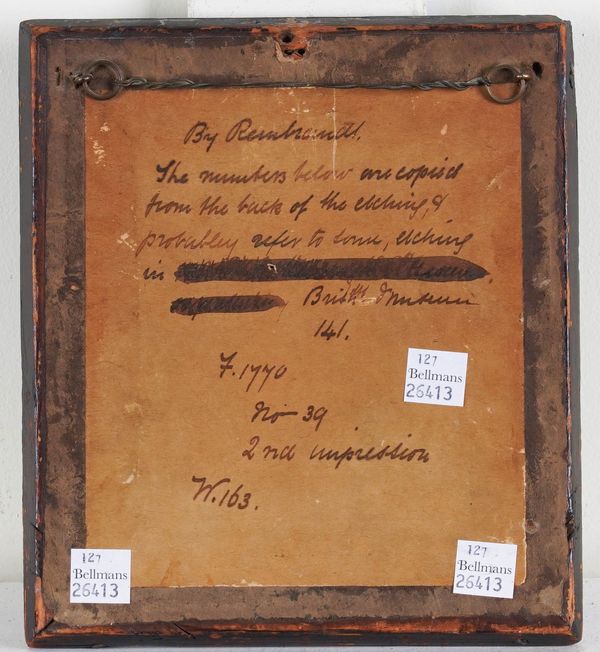 By Rembrandt.
The numbers below are copied
from the back of the etching, &
probabley refer to some, etching
in
British Museum
141.
F. 1770
No 39
2nd impression
W. 163.
127
Bellmans
26413
127
Bellmans
26413
127
Bellmans
26413